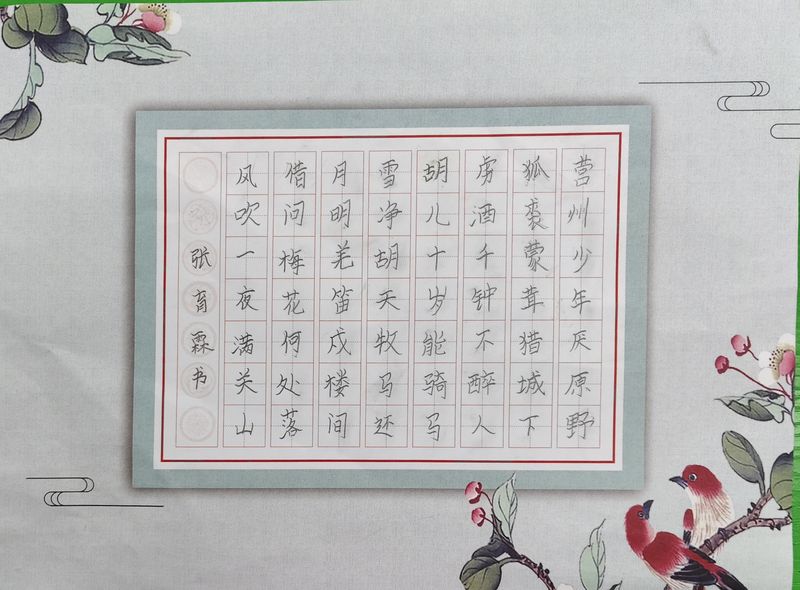 营州少年厌原野
狐裘蒙茸猎城下
虏酒千钟不醉人
胡儿十岁能骑马
雪净胡天牧马还
月明羌笛戍楼间
借问梅花何处落
风吹一夜满关山
张育霖书